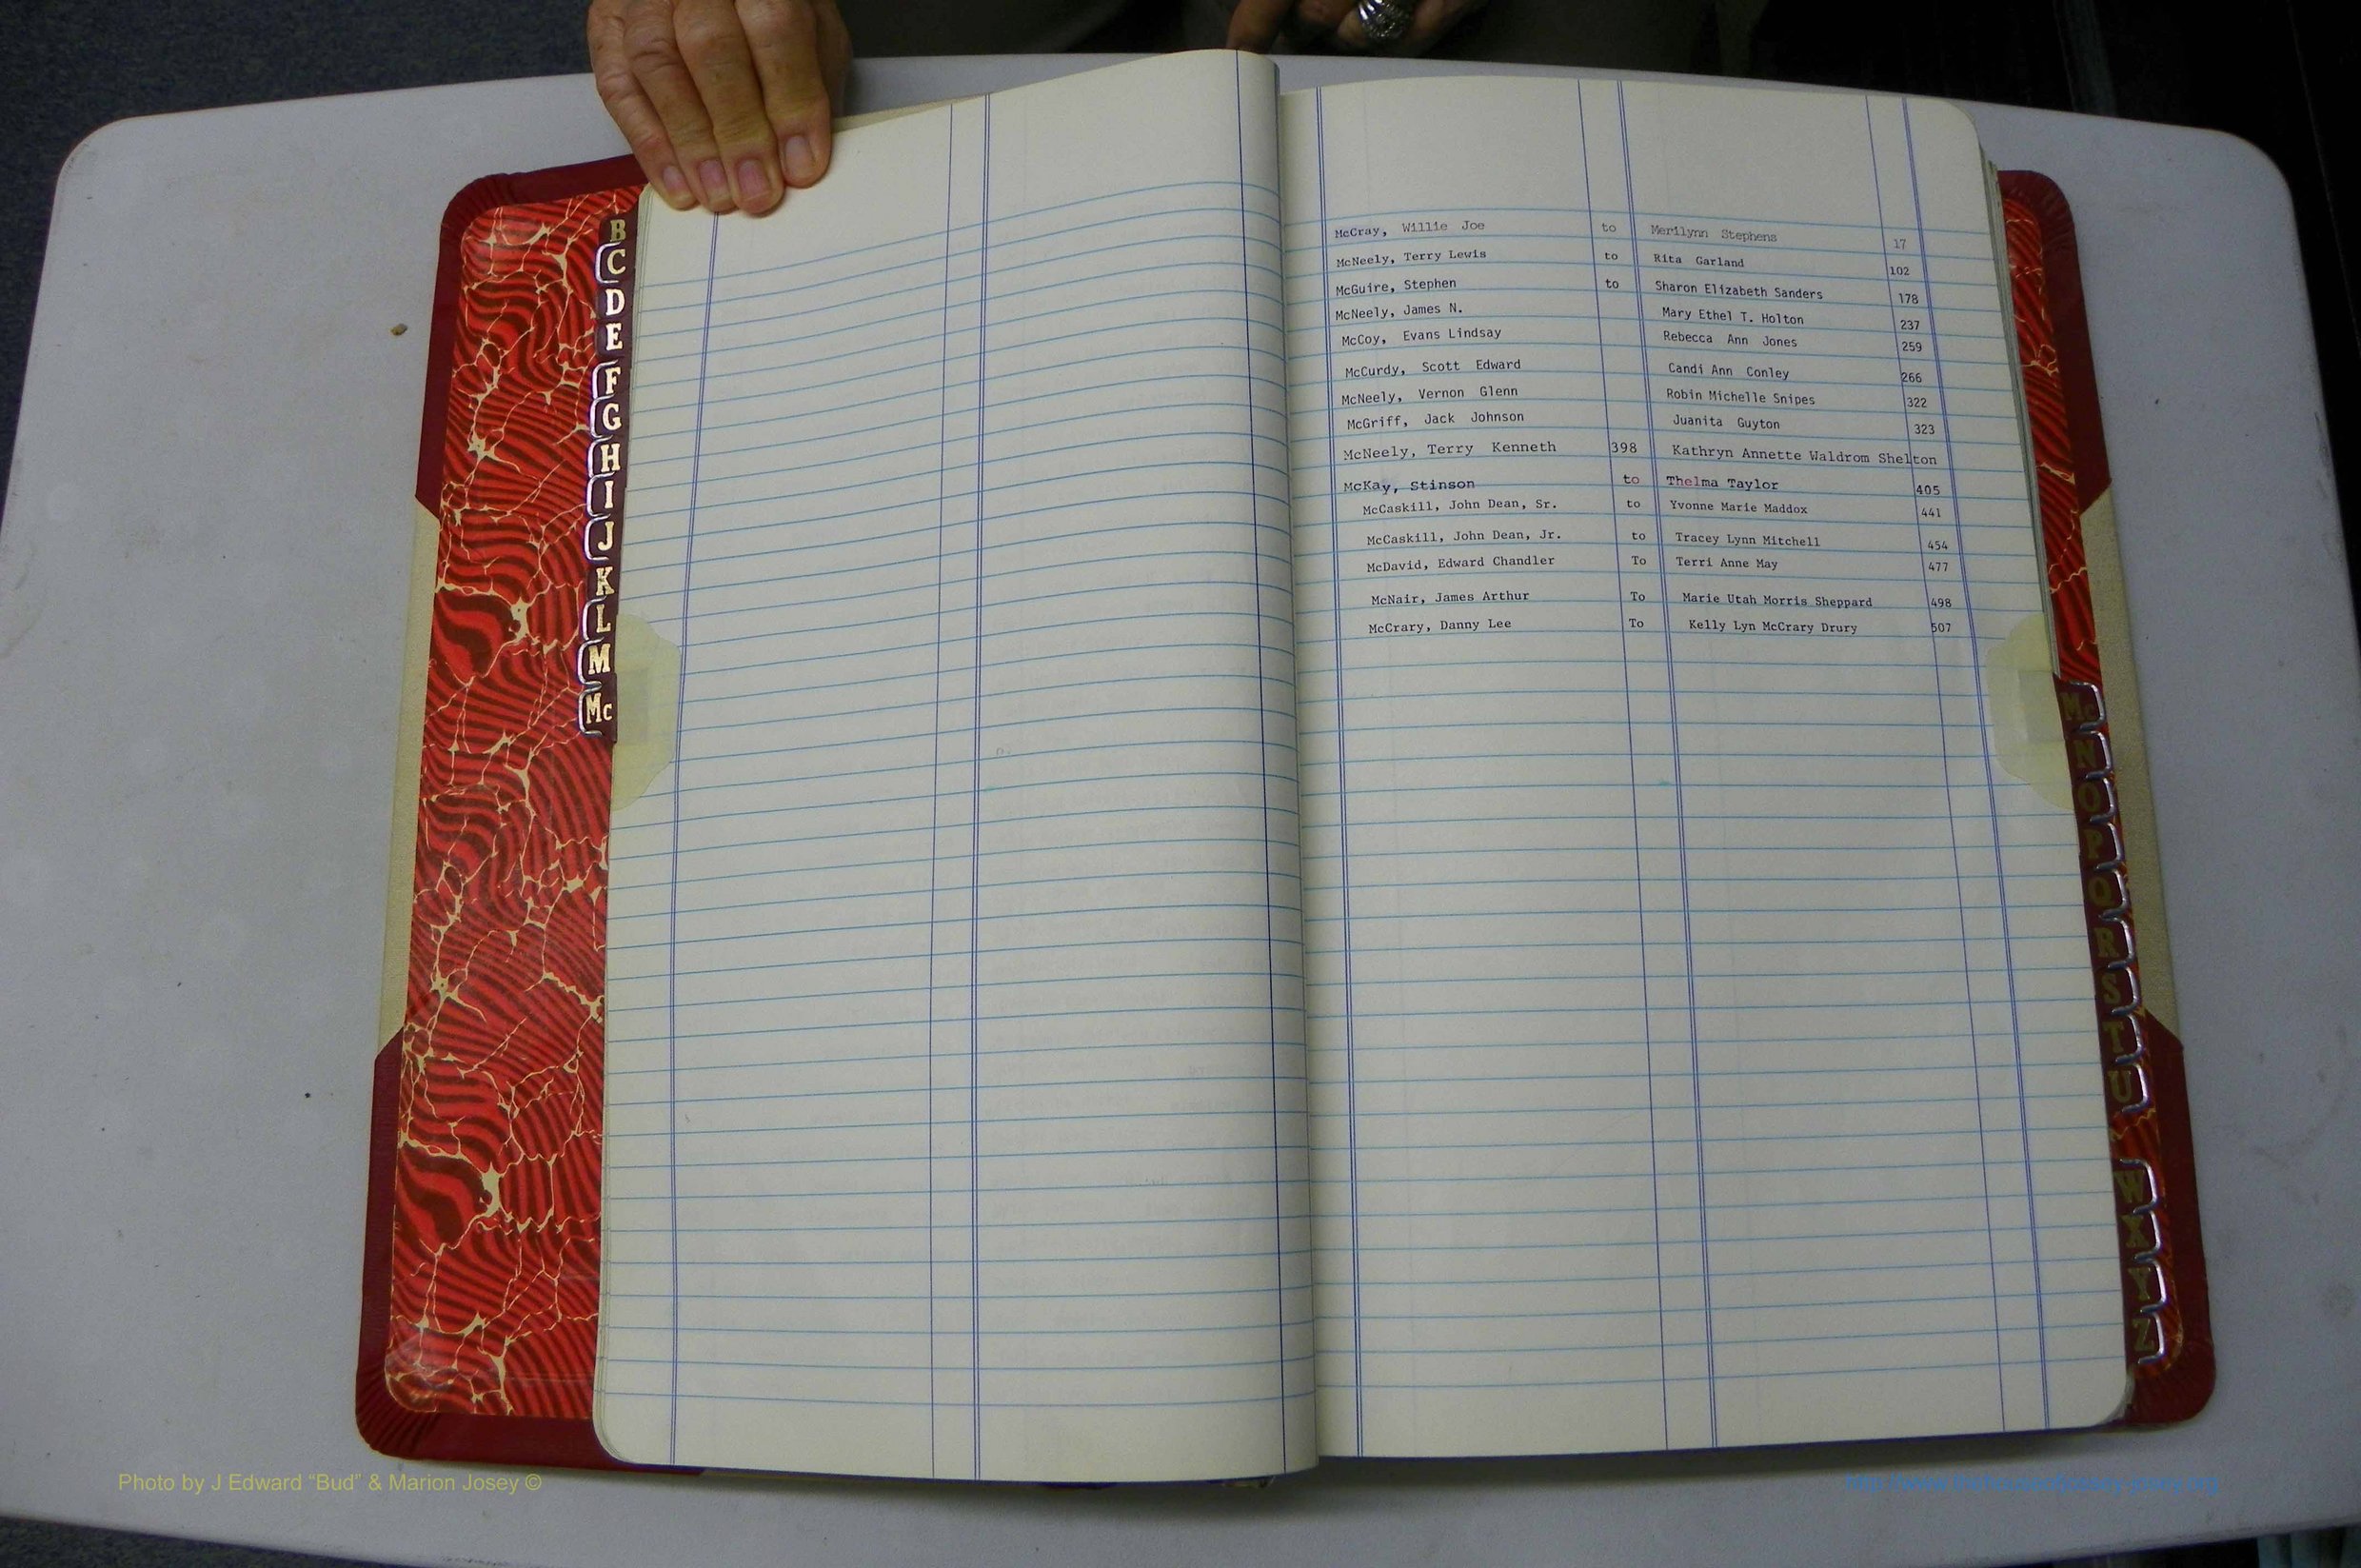 B
C
D
E
F
G
H
I
J
K
L
M
Mc
McCray, Willie Joe to Merilynn Stephens 17
McNeely, Terry Lewis to Rita Garland 102
McGuire, Stephen to Sharon Elizabeth Sanders 178
McNeely, James N. Mary Ethel T. Holton 237
McCoy, Evans Lindsay Rebecca Ann Jones 259
McCurdy, Scott Edward Candi Ann Conley 266
McNeely, Vernon Glenn Robin Michelle Snipes 322
McGriff, Jack Johnson Juanita Guyton 323
McNeely, Terry Kenneth 398 Kathryn Annette Waldrom Shelton
McKay, Stinson to Thelma Taylor 405
McCaskill, John Dean, Sr. to Yvonne Marie Maddox 441
McCaskill, John Dean, Jr. to Tracey Lynn Mitchell 454
McDavid, Edward Chandler To Terri Anne May 477
McNair, James Arthur To Marie Utah Morris Sheppard 498
McCrary, Danny Lee To Kelly Lyn McCrary Drury 507
Mc
N
O
P
Q
R
S
T
U
W
X
Y
Z
Photo by J Edward “Bud” & Marion Josey ©